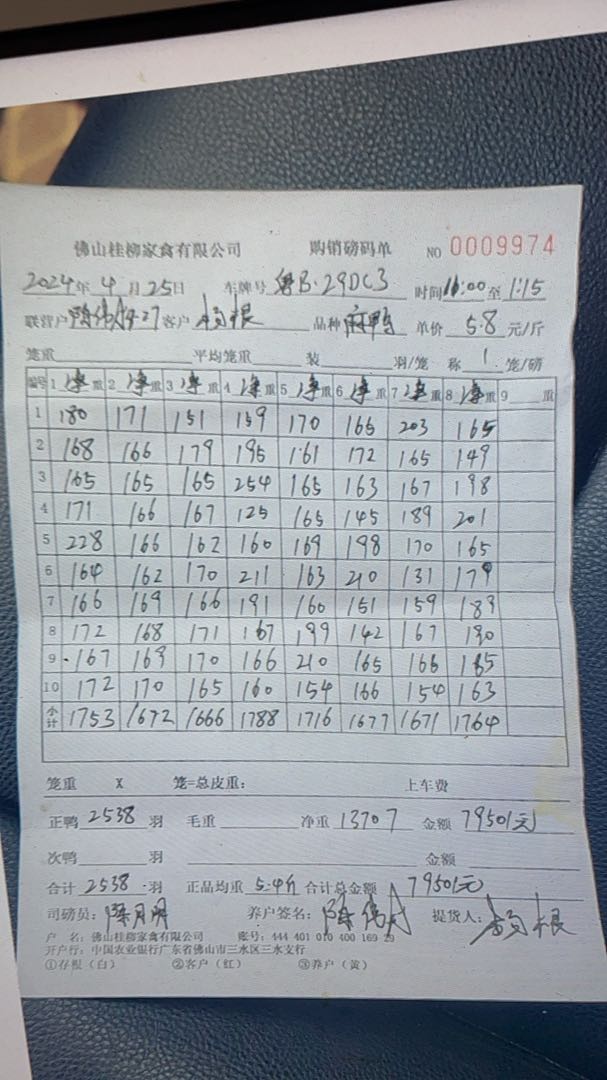 佛山桂柳家禽有限公司 购销磅码单 NO 0009974
2024年 4月 25日 车牌号 粤B·29DC3 时间 11:00 至 1:15
联营户 客户 杨根 品种 麻鸭 单价 5.8 元/斤
笼重 平均笼重 装 羽/笼 称 1 笼/磅
编号 1 净重 2 净重 3 净重 4 净重 5 净重 6 净重 7 净重 8 净重 9 重
1 180 171 151 159 170 165 203 165
2 168 166 179 195 161 172 165 149
3 165 165 165 254 165 163 167 198
4 171 166 167 125 165 145 189 201
5 228 166 162 160 169 198 170 165
6 164 162 170 211 163 210 131 179
7 166 169 166 191 160 151 159 189
8 172 168 171 167 199 142 167 190
9 167 169 170 166 210 165 166 165
10 172 170 165 160 154 166 154 163
小计 1753 1672 1666 1788 1716 1677 1671 1764
笼重 X 笼=总皮重: 上车费
正鸭 2538 羽 毛重 净重 13707 金额 79501元
次鸭 羽 金额
合计 2538 羽 正品均重 5.4斤 合计总金额 79501元
司磅员: 陈月明 养户签名: 提货人: 杨根
户 名: 佛山桂柳家禽有限公司 账号: 444 401 010 400 169 29
开户行: 中国农业银行广东省佛山市三水区三水支行
①存根(白) ②客户(红) ③养户(黄)